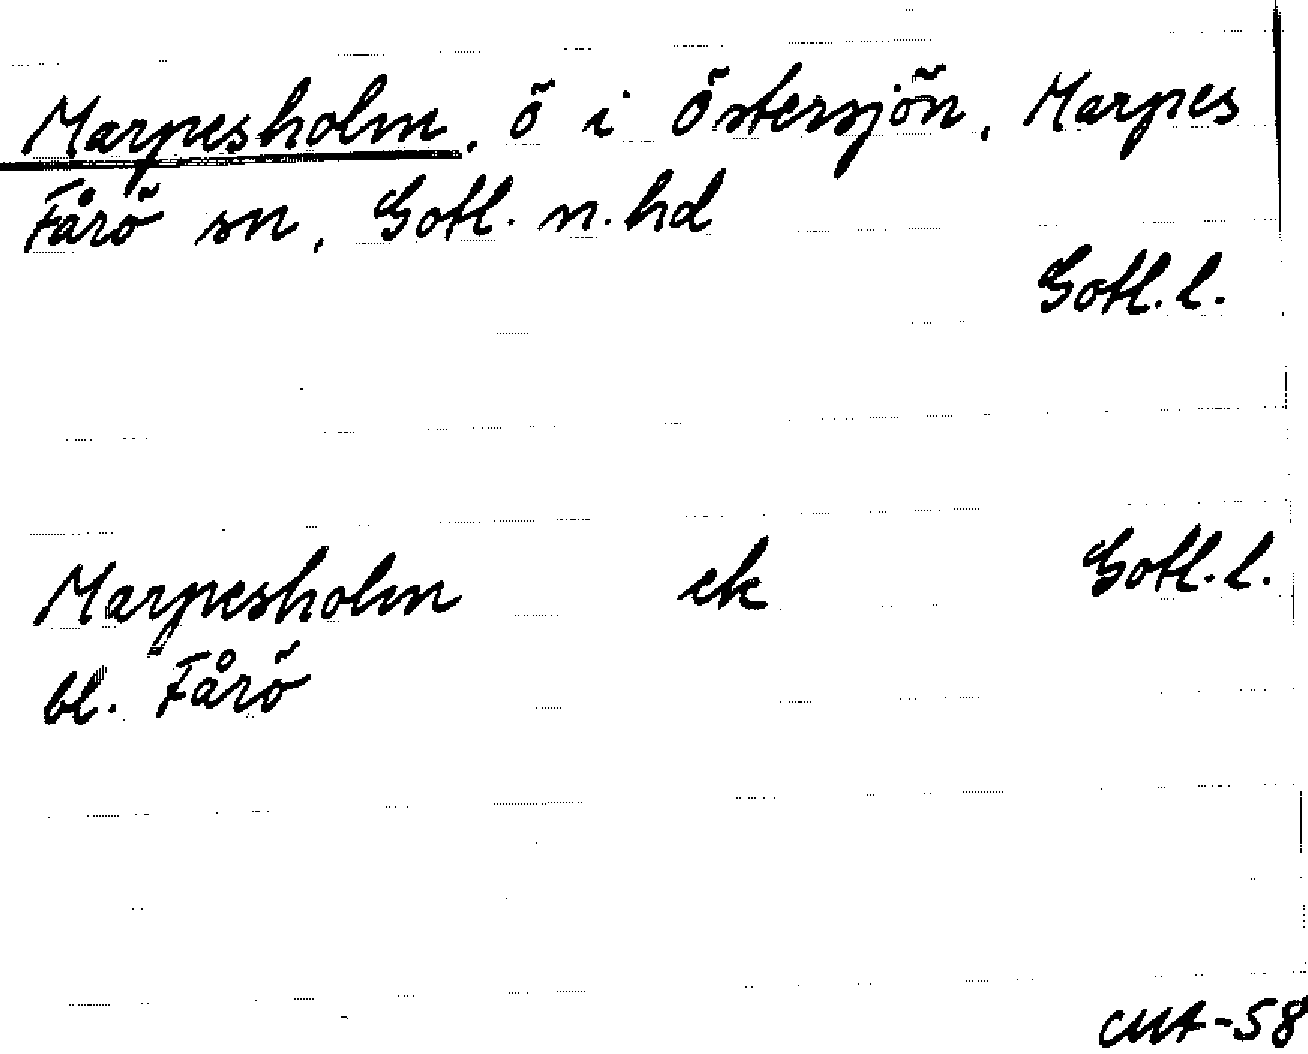 Marpesholm, ö i Östersjön, Marpes
Fårö sn, Gotl. n. hd
Gotl. l.
Marpesholm ek Gotl. l.
bl. Fårö
CMA-58